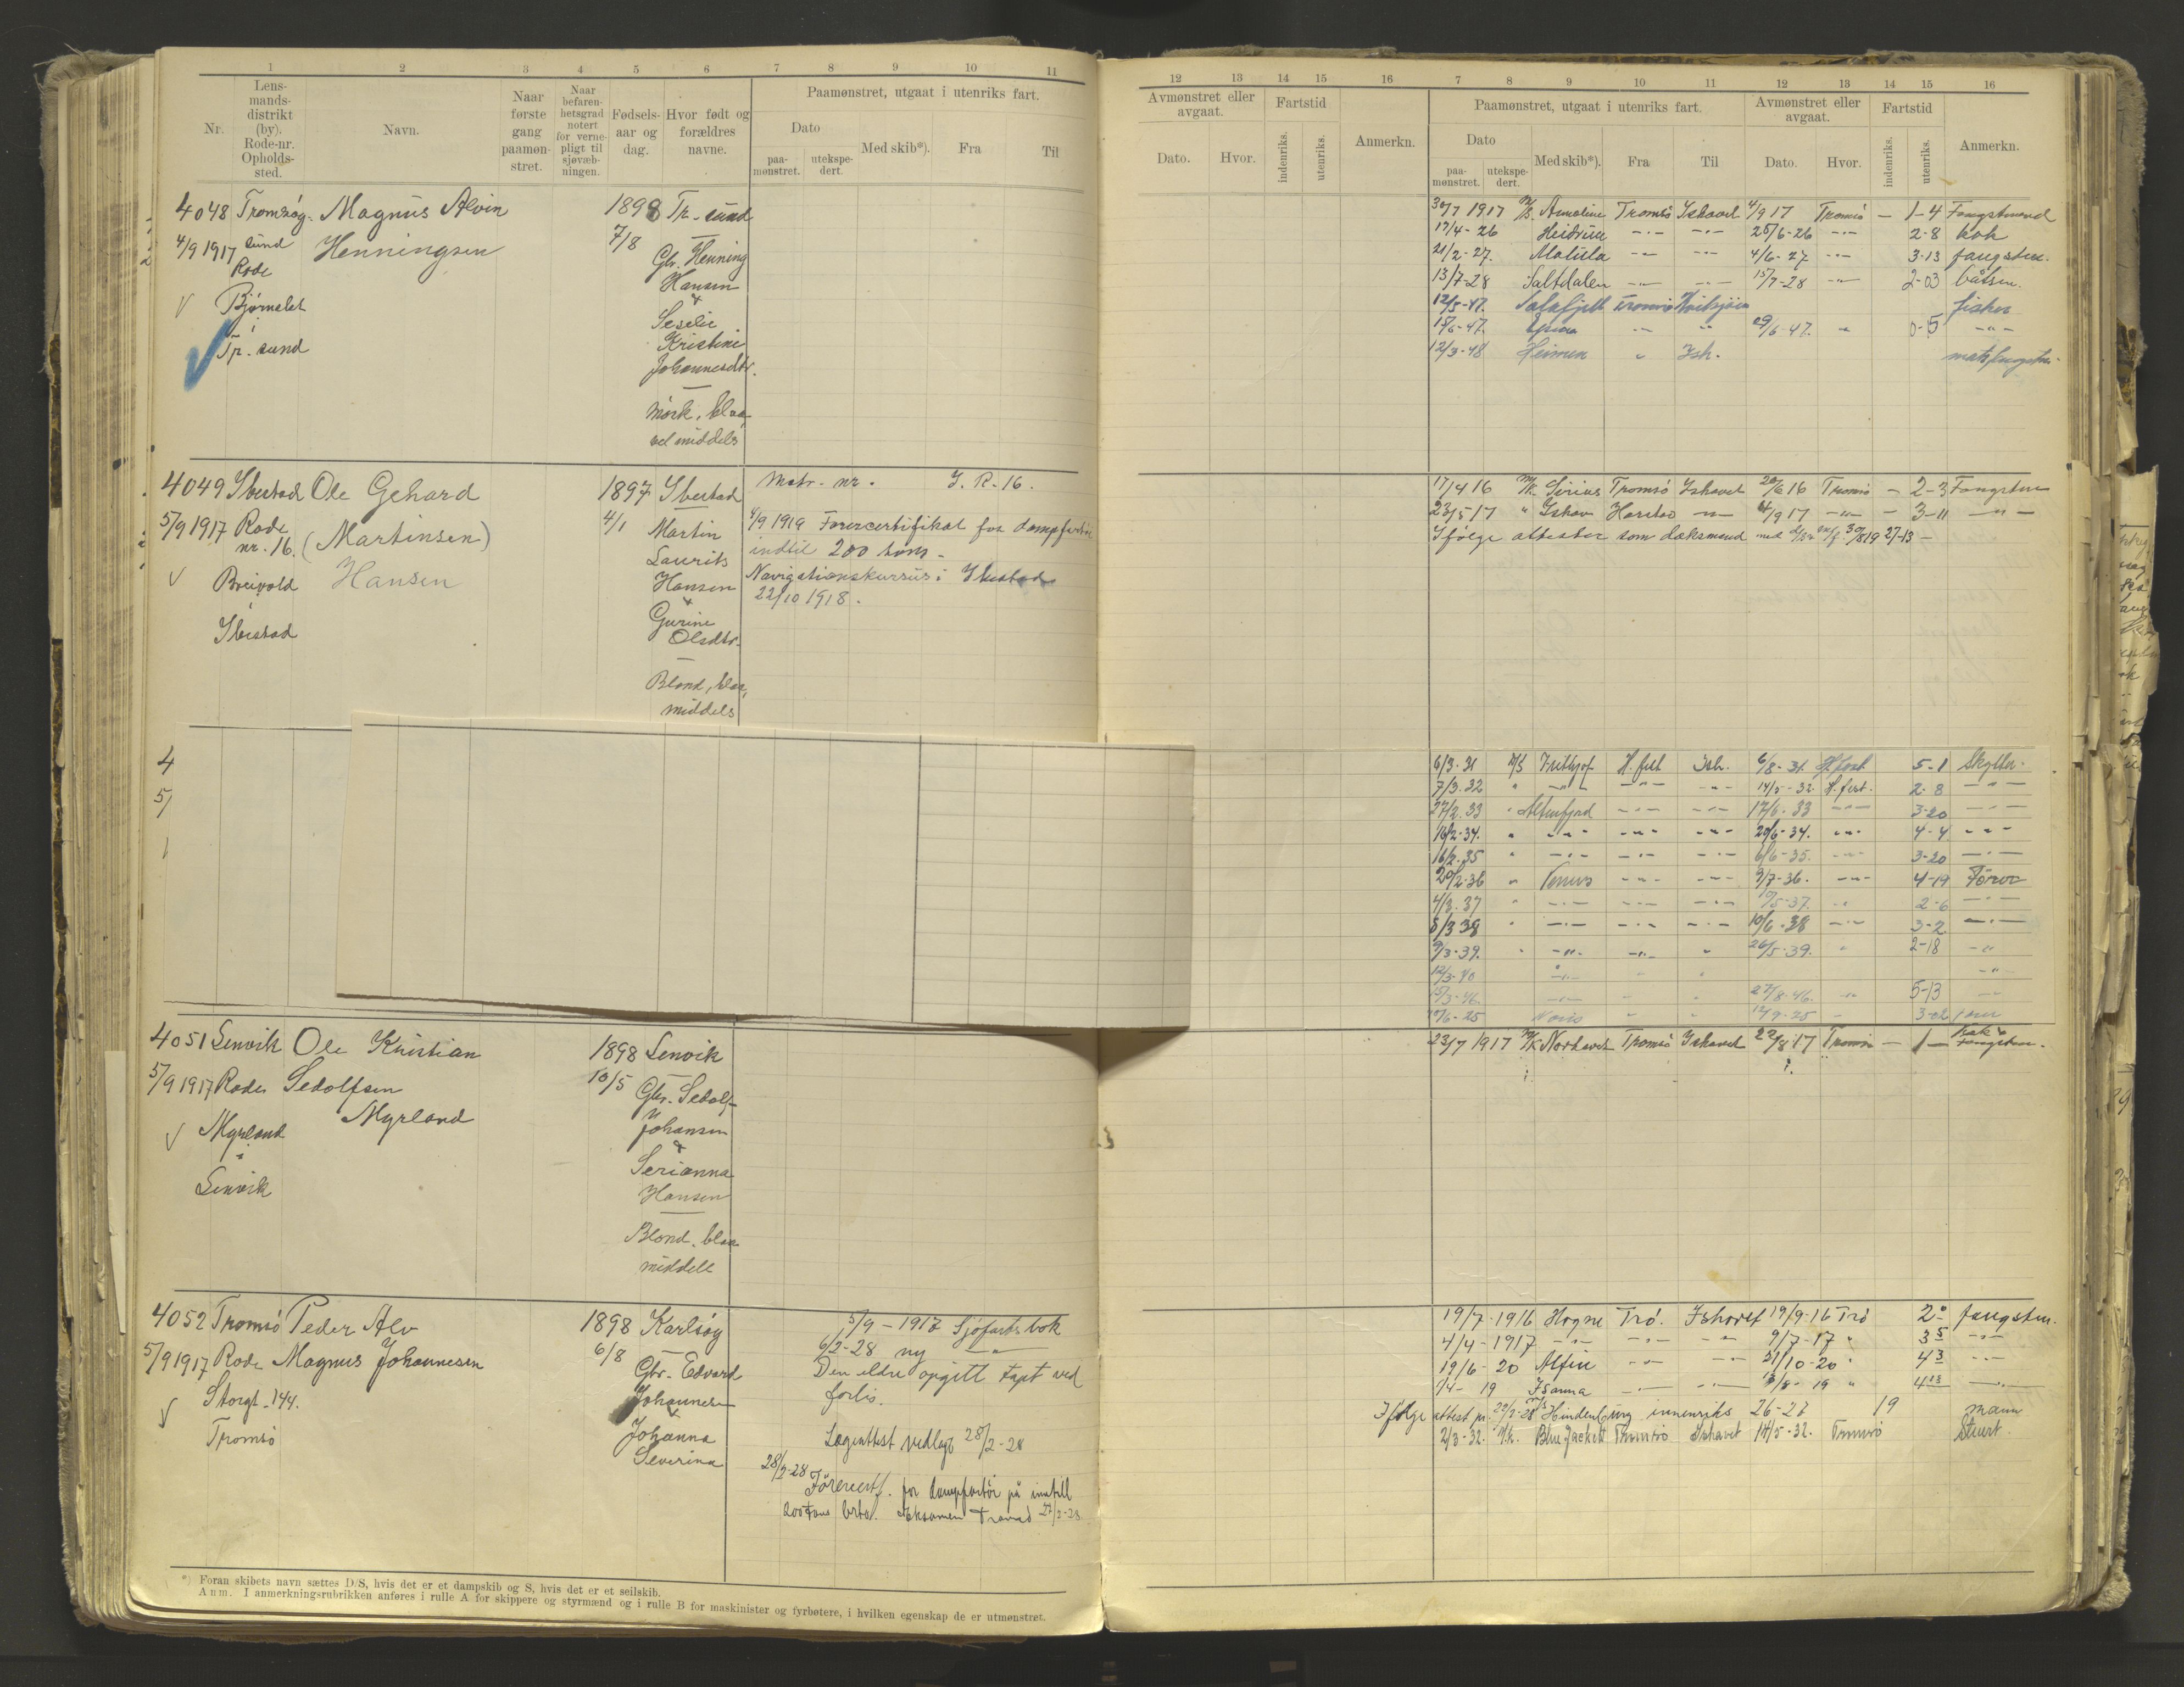 1 2 3 4 5 6 7 8 9 10 11
Nr.
Lens-
mands-
distrikt
(by).
Rode-nr.
Opholds-
sted.
Navn.
Naar
første
gang
paamøn-
stret.
Naar
befaren-
hetsgrad
notert
for verne-
pligt til
sjøvæb-
ningen.
Fødsels-
aar og
dag.
Hvor født og
forældres
navne.
Paamønstret, utgaat i utenriks fart.
Dato
paa-
mønstret.
utekspe-
dert.
Med skib*).
Fra
Til
4048 Tromsøy- Magnus Alvin 1898 Tr.sund
4/9 1917 sund Henningsen 7/8 Gbr. Henning
Rode Hansen
Bjørnelet &
i Seselie
Tr.sund Kristine
Johannesdtr.
Mørk, blaa,
vel middels
4049 Ibestad Ole Gehard 1897 Ibestad Matr. nr. I. R. 16.
5/9 1917 Rode (Martinsen) 4/1 Martin 4/9 1919 Førercertifikat for dampfartøi
nr. 16. Laurits indtil 200 tons.
Breivold Hansen Hansen Navigationskursus i Ibestad
i & 22/10 1918.
Ibestad Gurine
Olsdtr.
Blond, blaa,
middels
4
5/
4051 Lenvik Ole Kristian 1898 Lenvik
5/9 1917 Rode Sedolfsen 10/5 Gbr. Sedolf
Myrland Myrland Johansen
i &
Lenvik Serianna
Hansen
Blond, blaa
middels
4052 Tromsø Peder Alv 1898 Karlsøy 5/9 - 1917 Sjøfartsbok
5/9 1917 Rode Magnus Johannesen 6/8 6/2-28 ny -"-
Storgt. 144. Gbr. Edvard Den eldre opgitt tapt ved
Tromsø Johannesen forlis.
&
Johanna Lægeattest vedlagt 28/2-28
Severina
28/2-28 Førercertf. for dampfartøi på inntill
200 tons brto. Eksamen Tromsø 27/2-28
*) Foran skibets navn sættes D/S, hvis det er et dampskib og S, hvis det er et seilskib.
Anm. I anmerkningsrubrikken anføres i rulle A for skippere og styrmænd og i rulle B for maskinister og fyrbøtere, i hvilken egenskap de er utmønstret.
12 13 14 15 16 7 8 9 10 11 12 13 14 15 16
Avmønstret eller
avgaat.
Dato.
Hvor.
Fartstid
indenriks.
utenriks.
Anmerkn.
Paamønstret, utgaat i utenriks fart.
Dato
paa-
mønstret.
utekspe-
dert.
Med skib*).
Fra
Til
Avmønstret eller
avgaat.
Dato.
Hvor.
Fartstid
indenriks.
utenriks.
Anmerkn.
30/7 1917 Tromsø Ishavet 4/9 17 Tromsø - 1-4 Fangstmand
17/4-26 Heidrun -"- -"- 25/6-26 -"- 2-8 kok
21/2-27. -"- -"- 4/6-27 -"- 3-13 fangstm.
13/7-28 Saltdalen -"- -"- 15/7-28 -"- 2-03 båtsm.
12/5-47. Tromsø Kvitsjøen fisker
15/6-47. -"- 29/6-47. " 0-5 -"-
12/3-48 Heimen " Ish.
17/4 16 M/K Sirius Tromsø Ishavet 20/6 16 Tromsø - 2-3 Fangstm
23/5 17 " Ishav Harstad -"- 4/9 17 -"- - 3-11 -"-
Ifølge attester som dæksmand 30/8 19 27-13 -
6/3-31 M/S Frithjof H.fest Ish. 6/8-31 H.fest 5-1 Skytter.
7/3.32 " -"- -"- -"- 14/5-32 H.fest. 2-8 -"-
27/2.33 " Altenfjord -"- -"- 17/6-33 -"- 3-20 -"-
16/2-34. " -"- -"- -"- 20/6-34. -"- 4-4 -"-
16/2.35 " -"- -"- -"- 6/6-35. -"- 3-20 -"-
20/2-36 " Venus -"- -"- 9/7-36. -"- 4-19 Fører
4/3.37 " -"- -"- -"- 10/5-37. " 2-6 -"-
8/3 38 " -"- -"- -"- 10/6-38 -"- 3-2 -"-
9/3-39. " -"- -"- " 26/5-39. " 2-18 -"-
12/3-40 -"- " " -"-
15/3-46 -"- " " 27/8-46. -"- 5-13 -"-
23/7 1917 M/K Norhavet Tromsø Ishavet 22/8 17 Tromsø - 1 -
19/7-1916 Hogne Trø. Ishavet 19/9-16 Trø 2- fangstm.
4/4-1917 -"- -"- -"- 9/7-17 " 3 5 -"-
19/6-20 Alfin -"- -"- 21/10-20 " 4 3 -"-
1/4- 19 Isanna -"- -"- -19 " 4 13 -"-
Ifølge attest pr. 22/2-28 Hindenburg innenriks 26-27 19 mann
2/3-32. M.k. Blue Jackett Tromsø Ishavet 14/5-32. Tromsø Stuert.